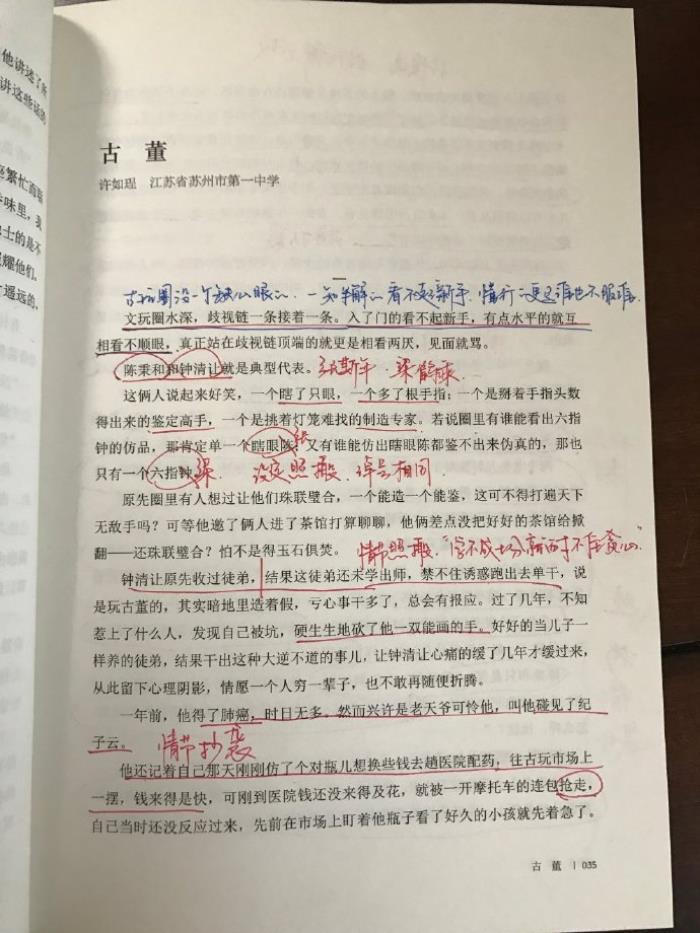 他讲述了所
讲这些话的
味里，我
士的是不
耀他们。
遥远的，
古 董
许如珵 江苏省苏州市第一中学
一
古玩圈没一个缺心眼的，一知半解的看不起新手，情行
文玩圈水深，歧视链一条接着一条。入了门的看不起新手，有点水平的就互
相看不顺眼，真正站在歧视链顶端的就更是相看两厌，见面就骂。
陈秉和和钟清让就是典型代表。
这俩人说起来好笑，一个瞎了只眼，一个多了根手指；一个是掰着手指头数
得出来的鉴定高手，一个是挑着灯笼难找的制造专家。若说圈里有谁能看出六指
钟的仿品，那肯定单一个瞎眼陈，又有谁能仿出瞎眼陈都鉴不出来伪真的，那也
只有一个六指钟。梁 设定照搬，绰号相同
原先圈里有人想过让他们珠联璧合，一个能造一个能鉴，这可不得打遍天下
无敌手吗？可等他邀了俩人进了茶馆打算聊聊，他俩差点没把好好的茶馆给掀
翻——还珠联璧合？怕不是得玉石俱焚。 情节照搬
钟清让原先收过徒弟，结果这徒弟还未学出师，禁不住诱惑跑出去单干，说
是玩古董的，其实暗地里造着假，亏心事干多了，总会有报应。过了几年，不知
惹上了什么人，发现自己被坑，硬生生地砍了他一双能画的手。好好的当儿子一
样养的徒弟，结果干出这种大逆不道的事儿，让钟清让心痛的缓了几年才缓过来，
从此留下心理阴影，情愿一个人穷一辈子，也不敢再随便折腾。
一年前，他得了肺癌，时日无多，然而兴许是老天爷可怜他，叫他碰见了纪
子云。 情节抄袭
他还记着自己那天刚刚仿了个对瓶儿想换些钱去趟医院配药，往古玩市场上
一摆，钱来得是快，可刚到医院钱还没来得及花，就被一开摩托车的连包抢走，
自己当时还没反应过来，先前在市场上盯着他瓶子看了好久的小孩就先着急了。
古 董 | 035